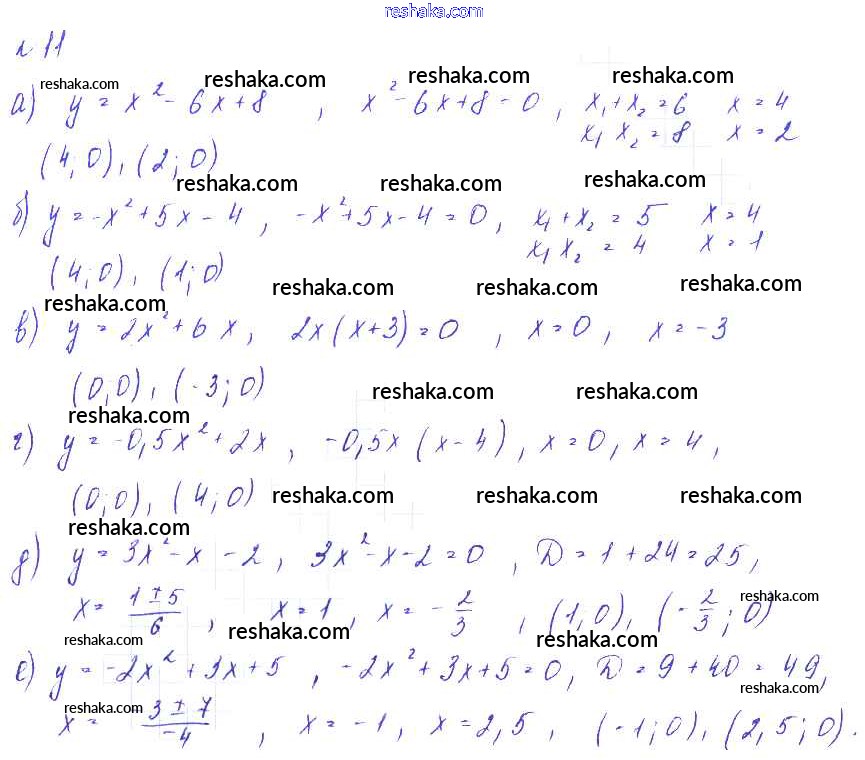 reshaka.com
№ 11
reshaka.com reshaka.com reshaka.com reshaka.com
а) y = x² - 6x + 8 , x² - 6x + 8 = 0 , x₁ + x₂ = 6 x = 4
x₁ x₂ = 8 x = 2
(4; 0), (2; 0)
reshaka.com reshaka.com reshaka.com
б) y = -x² + 5x - 4 , -x² + 5x - 4 = 0 , x₁ + x₂ = 5 x = 4
x₁ x₂ = 4 x = 1
(4; 0), (1; 0)
reshaka.com reshaka.com reshaka.com reshaka.com
в) y = 2x² + 6x , 2x(x + 3) = 0 , x = 0 , x = -3
(0; 0), (-3; 0)
reshaka.com reshaka.com reshaka.com
г) y = -0,5x² + 2x , -0,5x (x - 4) , x = 0, x = 4 ,
(0; 0), (4; 0)
reshaka.com reshaka.com reshaka.com reshaka.com
д) y = 3x² - x - 2 , 3x² - x - 2 = 0 , D = 1 + 24 = 25,
x = (1 ± 5)/6 , x = 1 , x = -2/3 , (1; 0), (-2/3; 0)
reshaka.com reshaka.com reshaka.com reshaka.com
е) y = -2x² + 3x + 5 , -2x² + 3x + 5 = 0, D = 9 + 40 = 49,
reshaka.com reshaka.com
x = (3 ± 7)/-4 , x = -1 , x = 2,5 , (-1; 0), (2,5; 0).